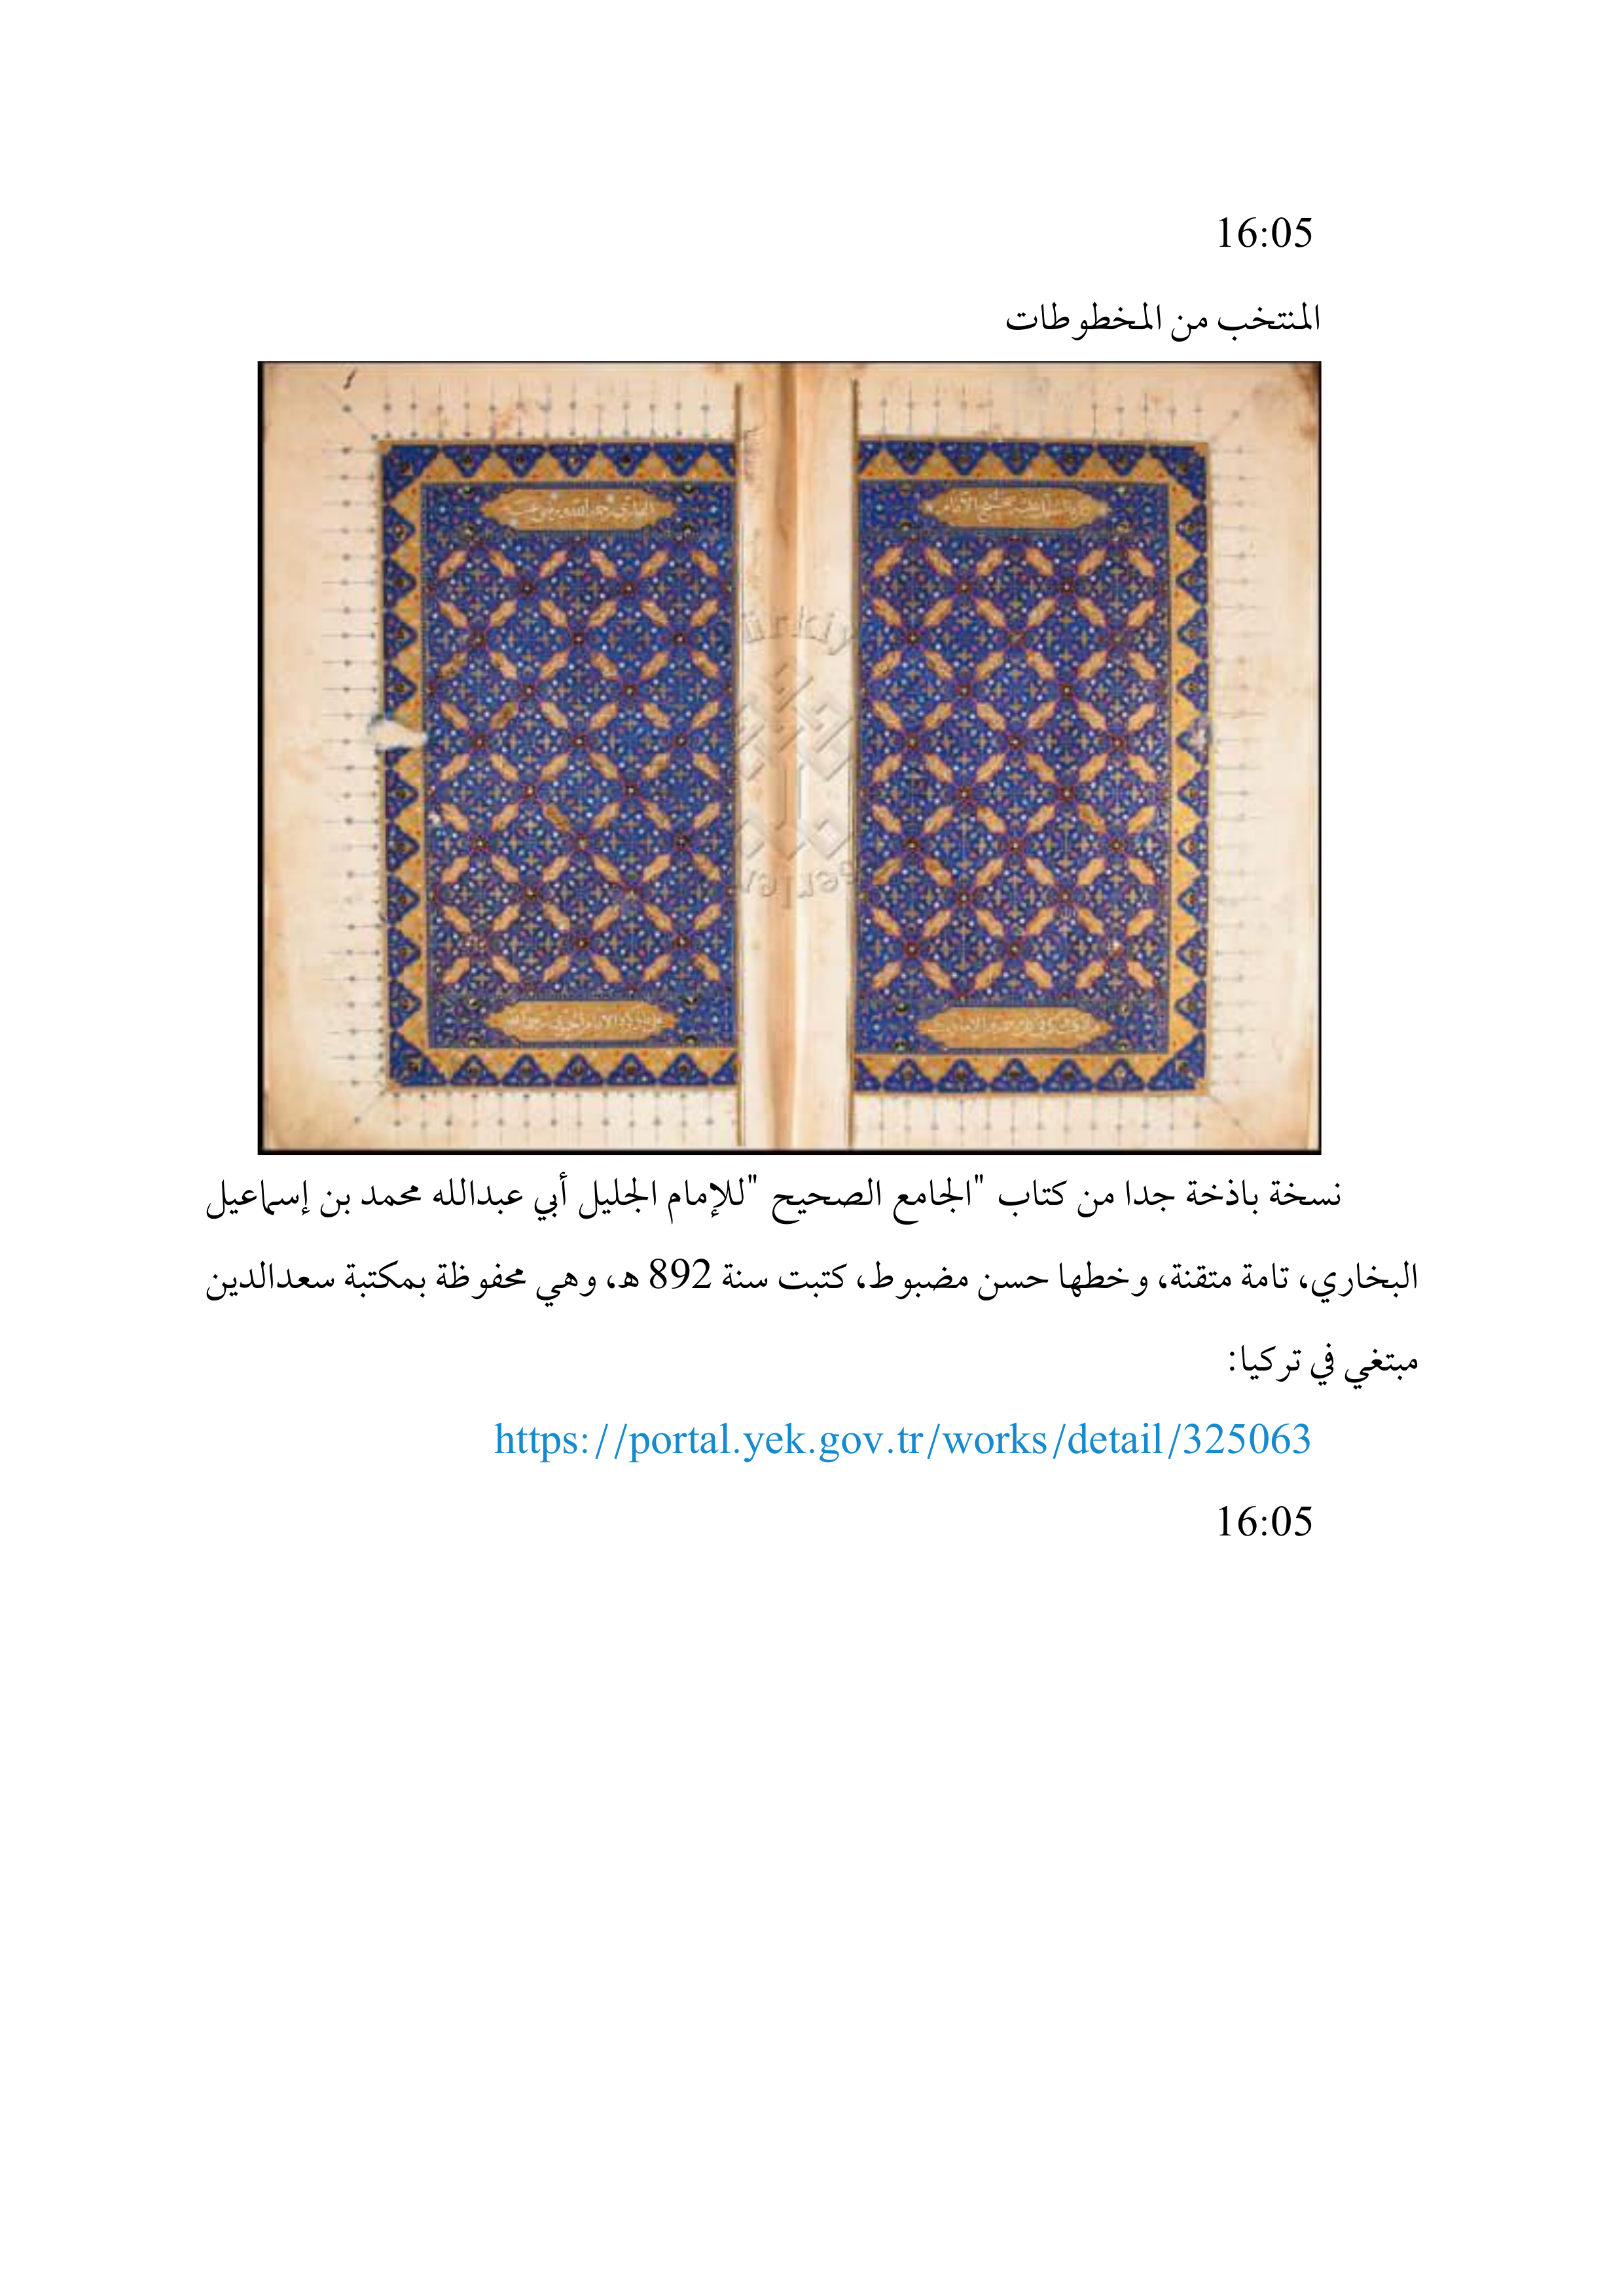 16:05
المنتخب من المخطوطات
نسخة باذخة جدا من كتاب "الجامع الصحيح "للإمام الجليل أبي عبدالله محمد بن إسماعيل
البخاري، تامة متقنة، وخطها حسن مضبوط، كتبت سنة 892 هـ، وهي محفوظة بمكتبة سعدالدين
مبتغي في تركيا:
https://portal.yek.gov.tr/works/detail/325063
16:05